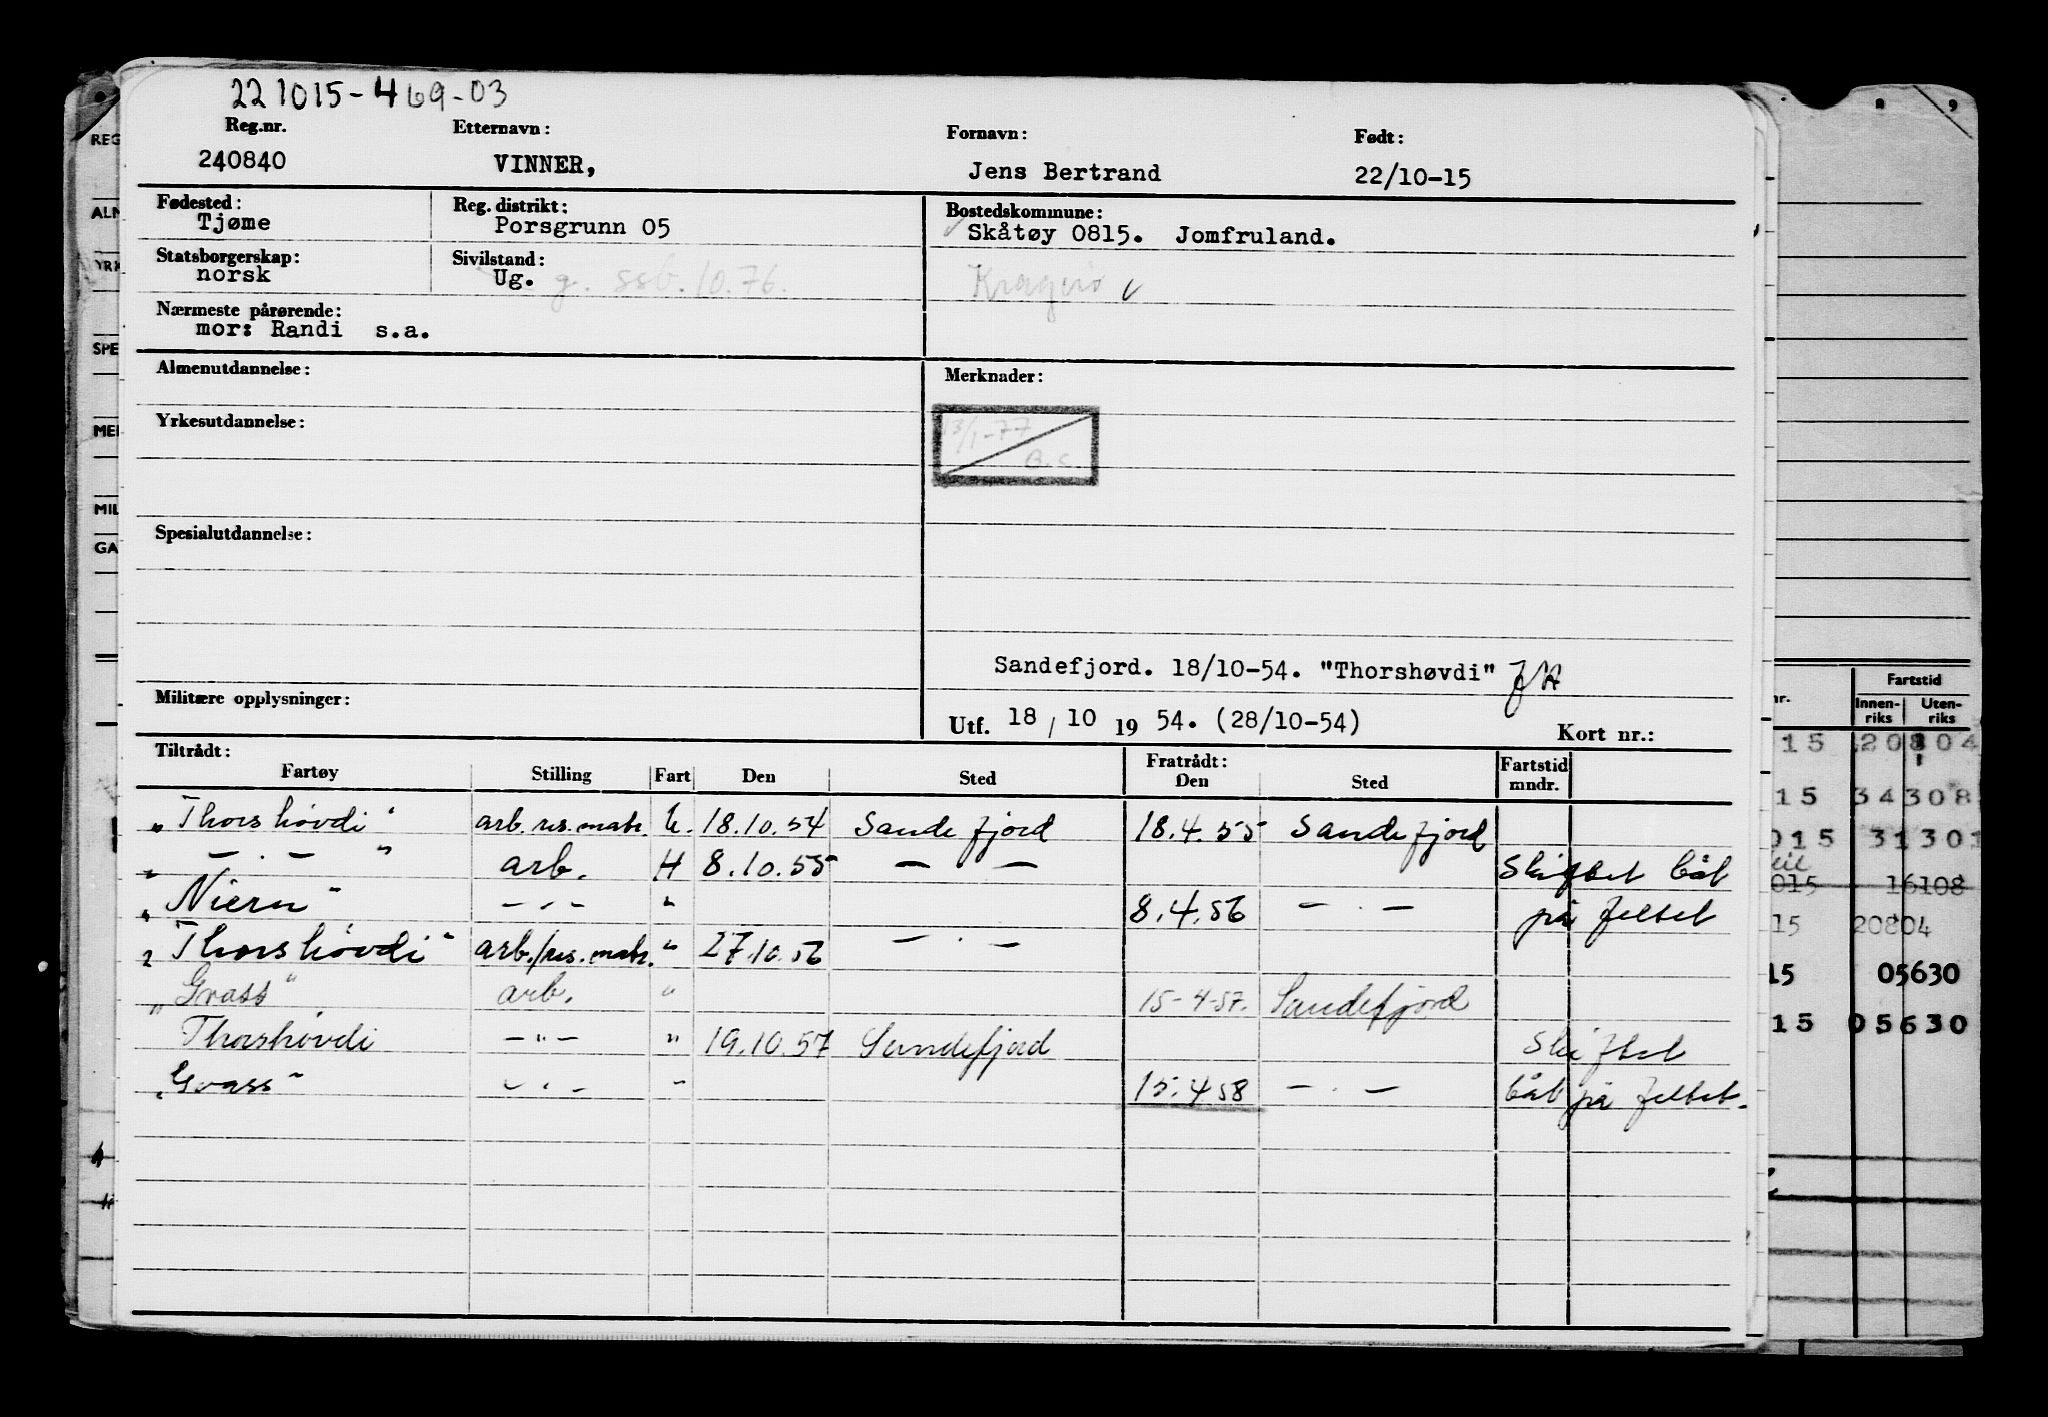 221015-469-03
Reg.nr. Etternavn: Fornavn: Født:
240840 VINNER, Jens Bertrand 22/10-15
Fødested: Reg. distrikt: Bostedskommune:
Tjøme Porsgrunn 05 Skåtøy 0815. Jomfruland.
Statsborgerskap: Sivilstand:
norsk Ug. g. ssb. 10.76. Kragerø
Nærmeste pårørende:
mor: Randi s.a.
Almenutdannelse: Merknader:
Yrkesutdannelse: 13/1-77
B.S.
Spesialutdannelse:
Sandefjord. 18/10-54. "Thorshøvdi"
Militære opplysninger:
Utf. 18/10 1954. (28/10-54) Kort nr.:
Tiltrådt: Fratrådt: Fartstid
Fartøy Stilling Fart Den Sted Den Sted mndr.
"Thorshøvdi" arb. res. matr. U. 18.10.54 Sandefjord 18.4.55 Sandefjord
" — . — " arb. H 8.10.55 — — Skiftet båt
"Niern" — " — " 8.4.56 — . — på feltet
"Thorshøvdi" arb./res. matr. " 27.10.56 — . —
"Gvass" arb. " 15-4-57. Sandefjord
Thorshøvdi — " — " 19.10.57 Sandefjord Skiftet
"Gvass" — . — " 15.4.58 — . — båt på feltet.
REG
ALM
YRK
SPE
MIL
GA
8 9
nr. Fartstid
Innen-riks Uten-riks
15 20804
15 34308
015 31301
015 16108
15 20804
15 05630
15 05630